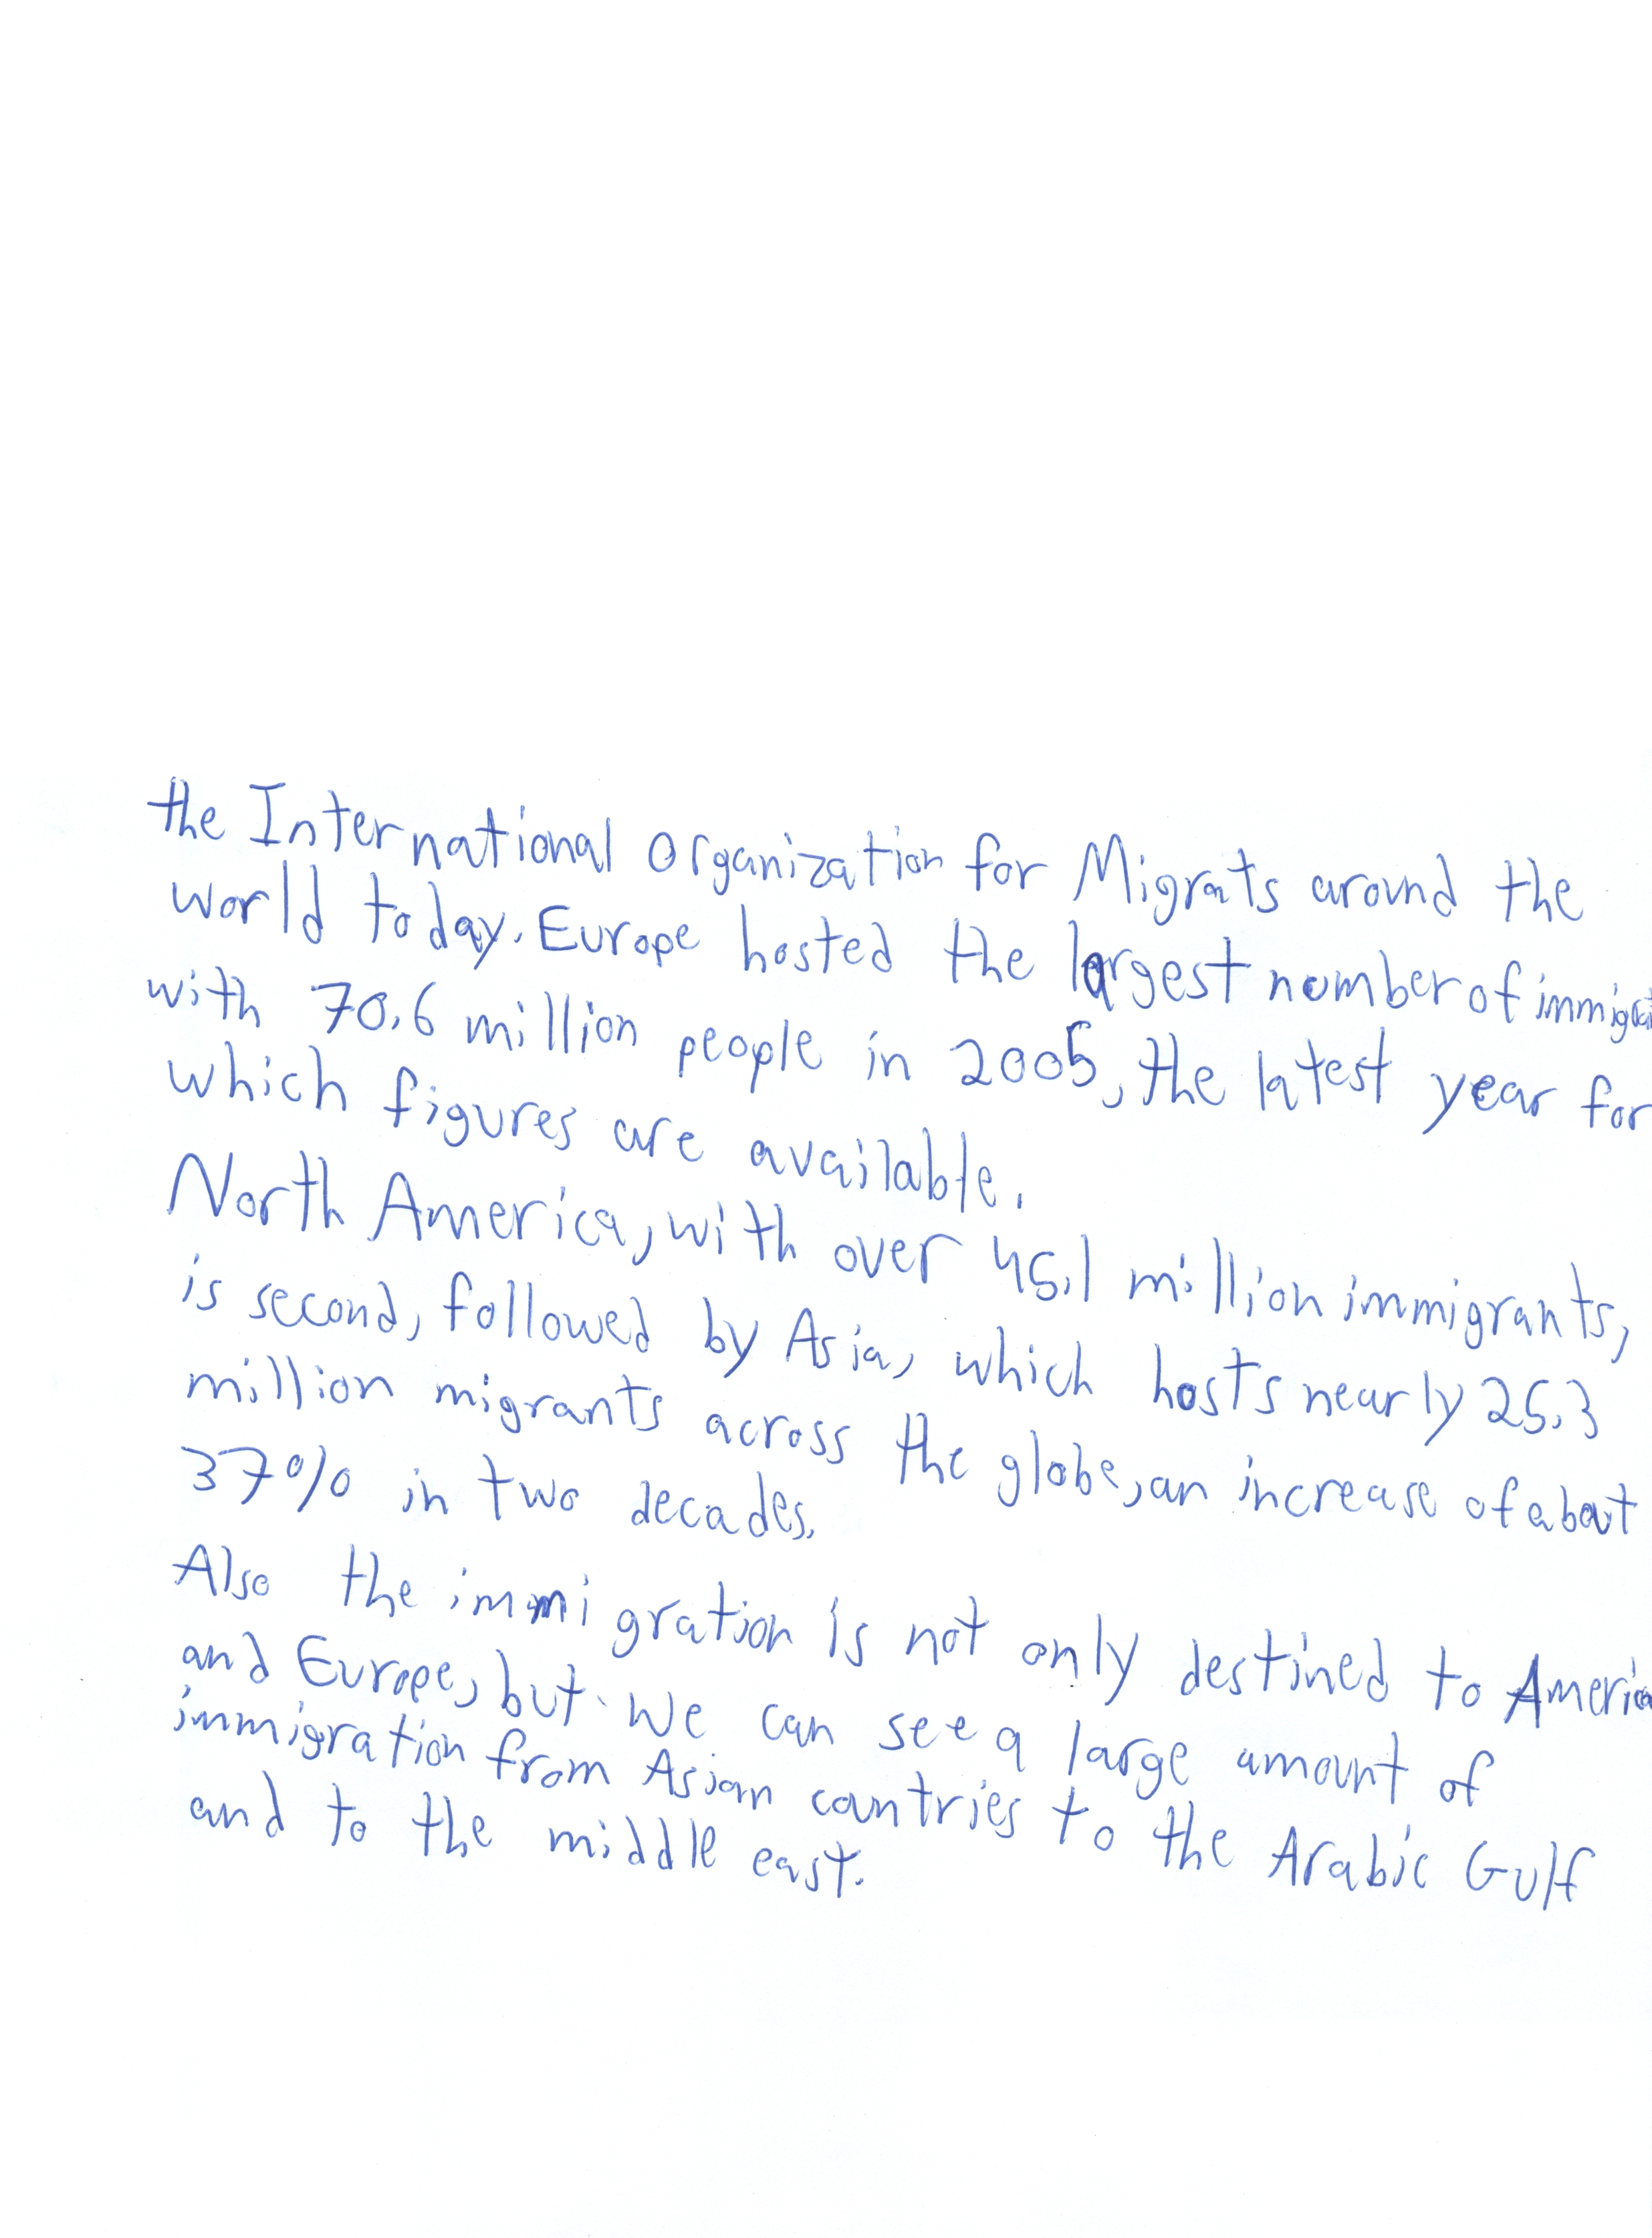 the International Organization for Migrats around the
world today. Europe hosted the largest number of
with 70.6 million people in 2005, the latest year for
which figures are available.
North America, with over 45.1 million immigrants,
is second, followed by Asia, which hosts nearly 25.3
million migrants across the globe, an increase of about
37% in two decades.
Also the immigration is not only destined to America
and Europe, but we can see a large amount of
immigration from Asian countries to the Arabic Gulf
and to the middle east.